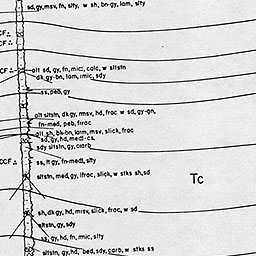 sd, gy, msv, fn, slty, w sh, bn-gy, lam, slty
CF
CF
CF
alt sd, gy, fn, mic, calc, w sltstn
dk gy-bn, lam, imic, sdy
ss, peb, gy
alt sltstn, dk gy, msv, hd, frac w sd, gy-gn,
fn-med, peb, frac
alt sh, bk-bn, lam, msv, slick, frac
sd, gy, hd, med-cs,
sdy sltstn, gy, carb
CCF
ss, lt gy, fn-med, slty
sltstn, med gy, lfrac, slick, w stks sh, sd
Tc
sh, dk gy, hd, msv, slick, frac, w sd
sltstn, gy, sdy
ss, gy, hd, fn, mic, slty
sltstn, gy, hd, bed, sdy, carb, w stks ss